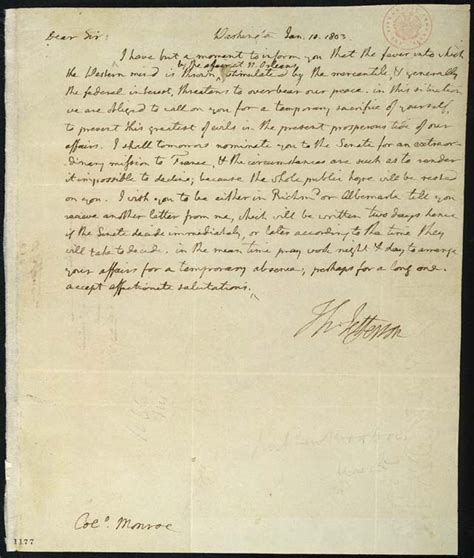 Dear Sir
Washington Jan. 10. 1803.
I have but a moment to inform you that the fever into which
by the affair at N. Orleans
the Western mind is thrown stimulated by the mercantile, & generally
the federal interest, threatens to overbear our peace. in this situation
we are obliged to call on you for a temporary sacrifice of yourself,
to prevent this greatest of evils in the present prosperous tide of our
affairs. I shall tomorrow nominate you to the Senate for an extraor-
dinary mission to France, & the circumstances are such as to render
it impossible to decline; because the whole public hope will be rested
on you. I wish you to be either in Richmd. or Albemarle till you
recieve another letter from me, which will be written two days hence
if the Senate decide immediately, or later according to the time they
will take to decide. in the mean time pray work night & day to arrange
your affairs for a temporary absence; perhaps for a long one.
accept affectionate salutations.
Th: Jefferson
Colo. Monroe
1177